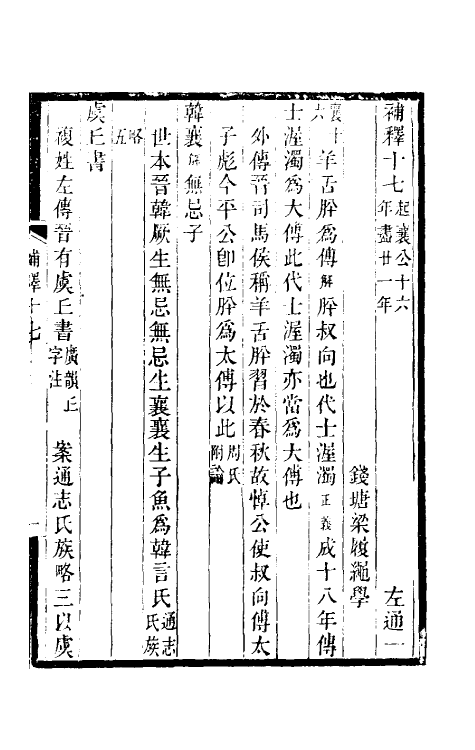 補釋十七起襄公十六年盡廿一年　左通一
錢塘梁履繩學
襄十六　羊舌肸爲傅解肸叔向也代士渥濁正義成十八年傳
士渥濁爲大傅此代士渥濁亦當爲大傅也
外傳晉司馬侯稱羊舌肸習於春秋故悼公使叔向傅太
子彪今平公卽位肸爲太傅以此周氏附論
韓襄解無忌子
世本晉韓厥生無忌無忌生襄襄生子魚爲韓言氏通志氏族
略五
虞丘書
複姓左傳晉有虞丘書廣韻丘字注　案通志氏族略三以虞
補釋十七　一